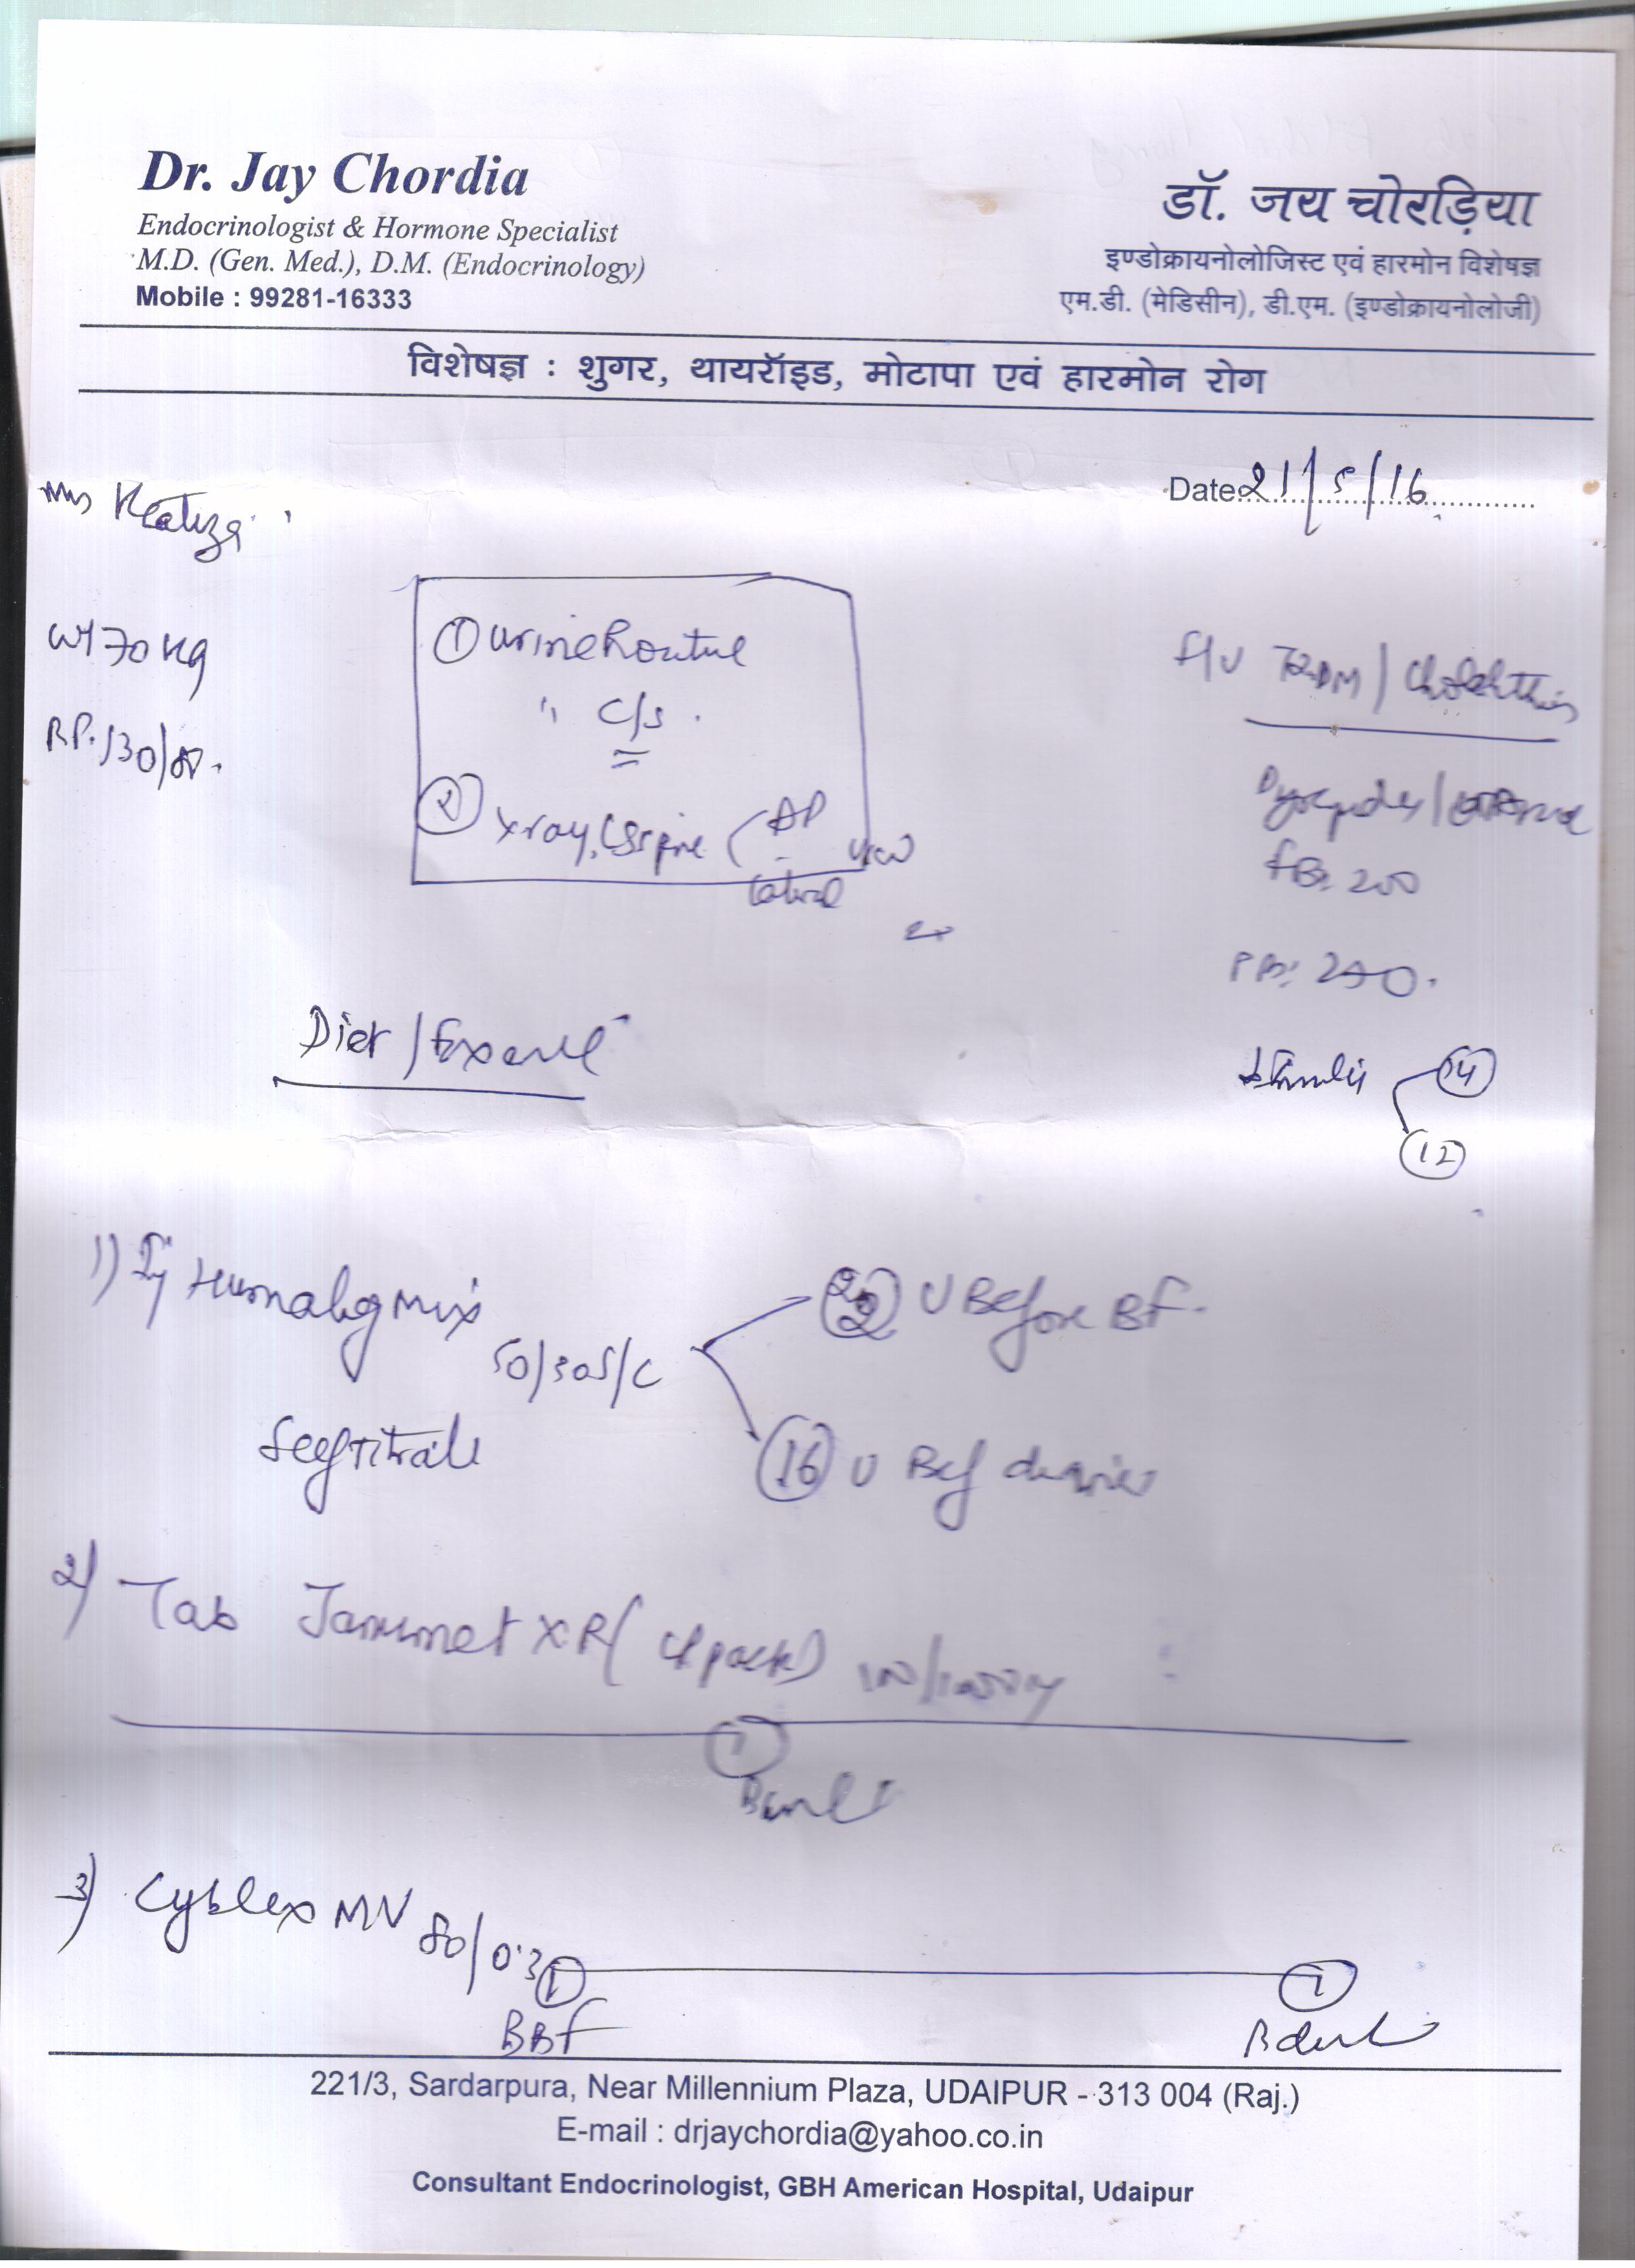 Dr. Jay Chordia
Endocrinologist & Hormone Specialist
M.D. (Gen. Med.), D.M. (Endocrinology)
Mobile : 99281-16333
डॉ. जय चोरड़िया
इण्डोक्रायनोलोजिस्ट एवं हारमोन विशेषज्ञ
एम.डी. (मेडिसीन), डी.एम. (इण्डोक्रायनोलोजी)
विशेषज्ञ : शुगर, थायरॉइड, मोटापा एवं हारमोन रोग
Date 21/5/16
Wt 70 Kg
B.P. 130/80.
① Urine Routine
" C/S.
② Xray, spine (AP
lateral view
F/U T2DM /
FBS 200
PBS
Diet / Exercise
14
12
1) Inj Humalog Mix
50/50 S/C
U Before BF.
Self Titrate
16 U Bef dinner
2) Tab Janumet XR (4 pack) 100/1000mg
1
3) Cyblex MV 80/0.3 1
1
BBF
221/3, Sardarpura, Near Millennium Plaza, UDAIPUR - 313 004 (Raj.)
E-mail : drjaychordia@yahoo.co.in
Consultant Endocrinologist, GBH American Hospital, Udaipur